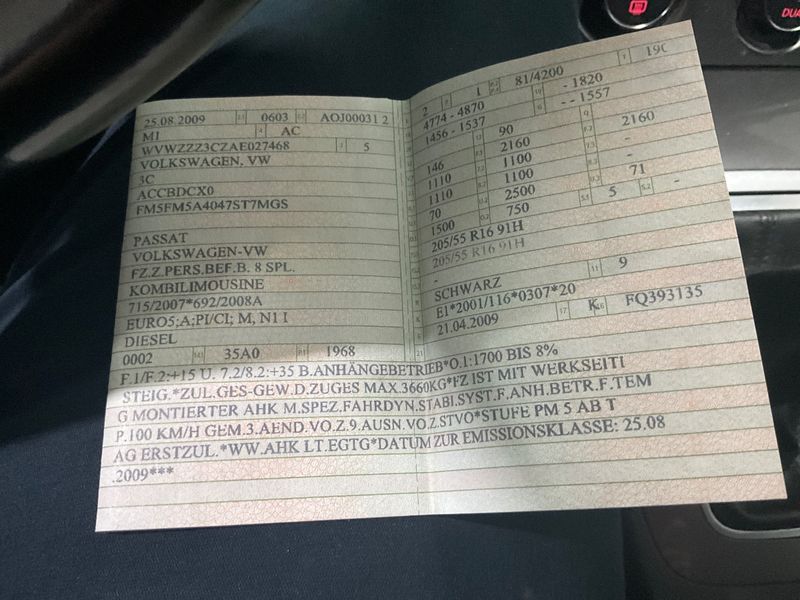 25.08.2009 0603 AOJ00031 2
M1 AC
WVWZZZ3CZAE027468 5
VOLKSWAGEN, VW
3C
ACCBDCX0
FM5FM5A4047ST7MGS
PASSAT
VOLKSWAGEN-VW
FZ.Z.PERS.BEF.B. 8 SPL.
KOMBILIMOUSINE
715/2007*692/2008A
EURO5;A;PI/CI; M, N1 I
DIESEL
0002 35A0 1968
2 1 81/4200
4774 - 4870 - 1820
1456 - 1537 - - 1557
90 2160
146 2160 -
1110 1100 -
1110 1100 -
70 2500 71
1500 750 5 -
205/55 R16 91H
205/55 R16 91H
-
SCHWARZ 9
E1*2001/116*0307*20
21.04.2009 K FQ393135
F.1/F.2:+15 U. 7.2/8.2:+35 B.ANHÄNGEBETRIEB*O.1:1700 BIS 8%
STEIG.*ZUL.GES-GEW.D.ZUGES MAX.3660KG*FZ IST MIT WERKSEITI
G MONTIERTER AHK M.SPEZ.FAHRDYN.STABI.SYST.F.ANH.BETR.F.TEM
P.100 KM/H GEM.3.AEND.VO.Z.9.AUSN.VO.Z.STVO*STUFE PM 5 AB T
AG ERSTZUL.*WW.AHK LT.EGTG*DATUM ZUR EMISSIONSKLASSE: 25.08
.2009***